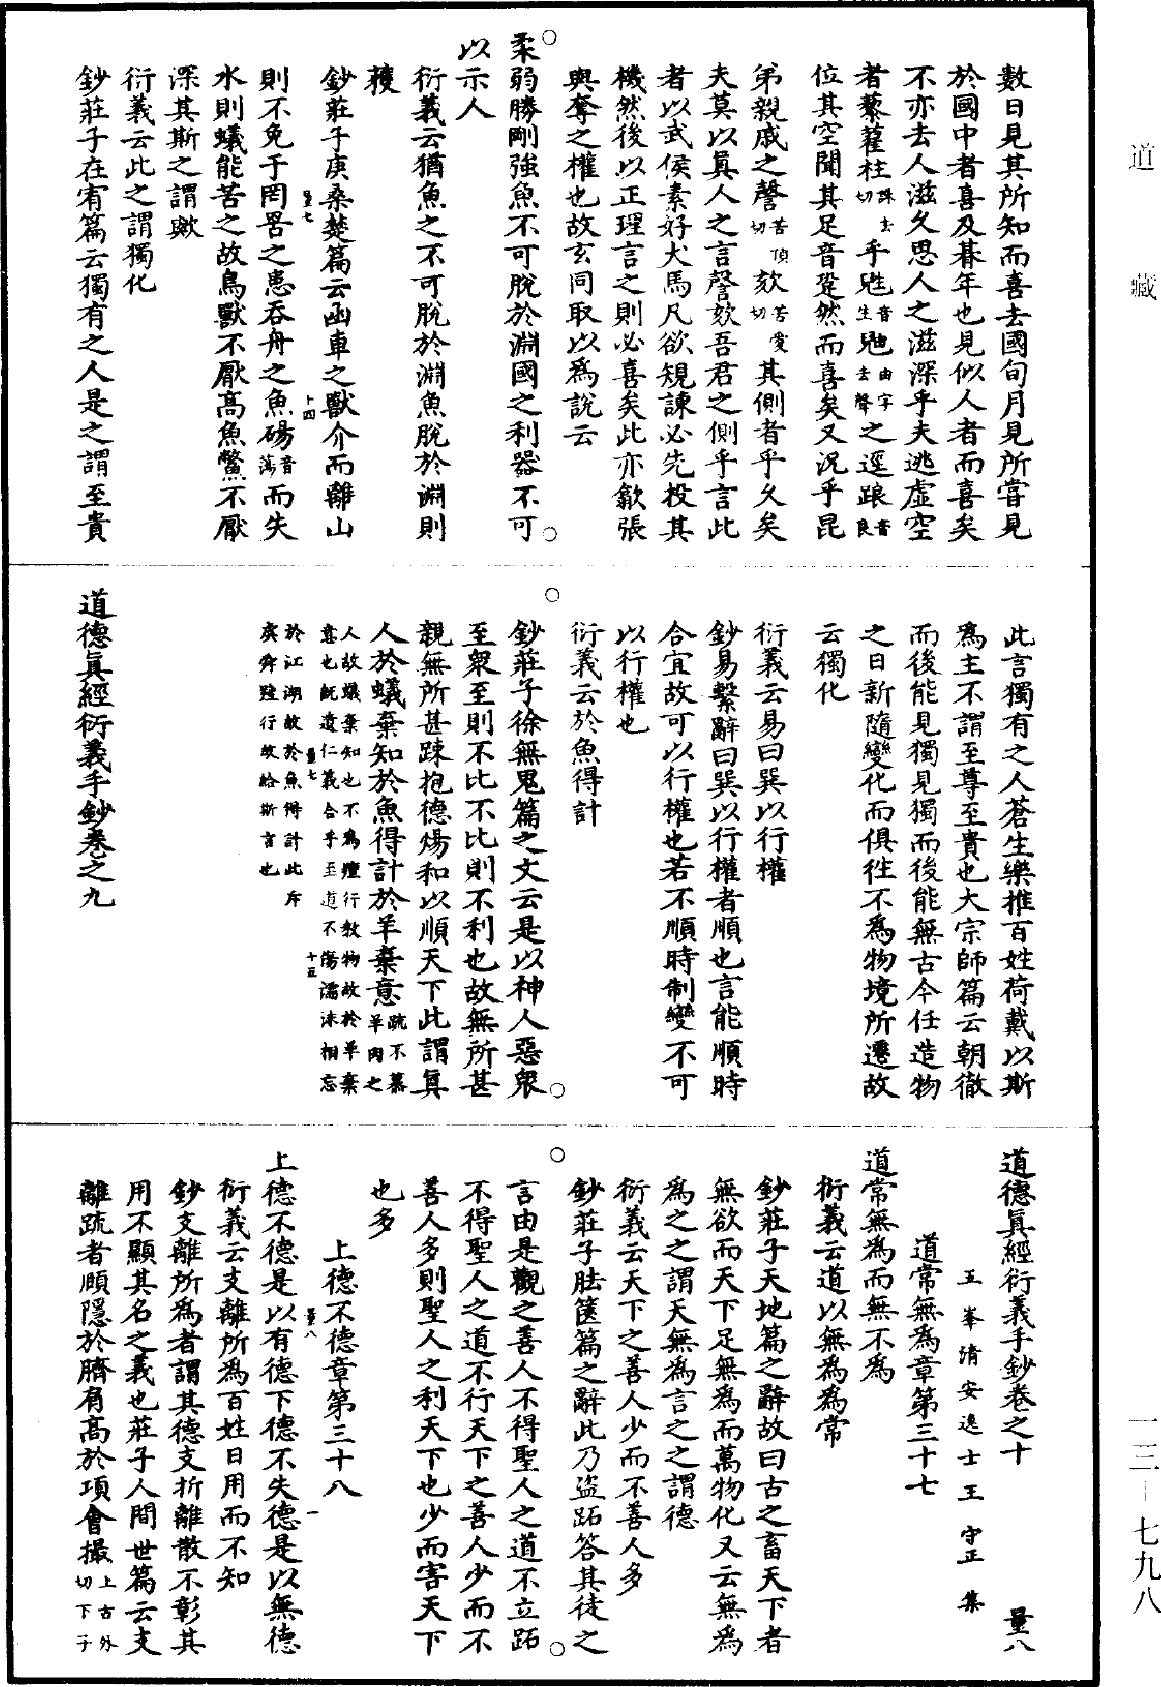 道藏
數日見其所知而喜去國旬月見所嘗見
於國中者喜及朞年也見似人者而喜矣
不亦去人滋久思人之滋深乎夫逃虛空
者藜藿柱珠主切乎鼪音生鼬音由字去聲之逕踉音良
位其空聞其足音跫然而喜矣又況乎昆
弟親戚之謦苦頂切欬苦愛切其側者乎久矣
夫莫以真人之言謦欬吾君之側乎言此
者以武侯素好犬馬凡欲規諫必先投其
機然後以正理言之則必喜矣此亦歙張
與奪之權也故玄同取以為說云
柔弱勝剛強魚不可脫於淵國之利器不可
以示人
衍義云猶魚之不可脫於淵魚脫於淵則
獲
鈔莊子庚桑楚篇云函車之獸介而離山
量七
十四
則不免于罔罟之患吞舟之魚碭音蕩而失
水則蟻能苦之故鳥獸不厭高魚鱉不厭
深其斯之謂歟
衍義云此之謂獨化
鈔莊子在宥篇云獨有之人是之謂至貴
此言獨有之人蒼生樂推百姓荷戴以斯
為主不謂至尊至貴也大宗師篇云朝徹
而後能見獨見獨而後能無古今任造物
之日新隨變化而俱徃不為物境所遷故
云獨化
衍義云易曰巽以行權
鈔易繫辭曰巽以行權者順也言能順時
合宜故可以行權也若不順時制變不可
以行權也
衍義云於魚得計
鈔莊子徐無鬼篇之文云是以神人惡衆
至衆至則不比不比則不利也故無所甚
親無所甚踈抱德煬和以順天下此謂真
人於蟻棄知於魚得計於羊棄意疏不慕羊肉之
人故蟻棄知也不為羶行教物故於羊棄
意也既遺仁義合乎至道不傷濡沫相忘
量七
十五
於江湖故於魚得計此斥
虞舜羶行故給斯言也
道德真經衍義手鈔卷之九
道德真經衍義手鈔卷之十
量八
五峯清安逸士王守正集
道常無為章第三十七
道常無為而無不為
衍義云道以無為為常
鈔莊子天地篇之辭故曰古之畜天下者
無欲而天下足無為而萬物化又云無為
為之之謂天無為言之之謂德
衍義云天下之善人少而不善人多
鈔莊子胠篋篇之辭此乃盜跖答其徒之
言由是觀之善人不得聖人之道不立跖
不得聖人之道不行天下之善人少而不
善人多則聖人之利天下也少而害天下
也多
上德不德章第三十八
量八
一
上德不德是以有德下德不失德是以無德
衍義云支離所為百姓日用而不知
鈔支離所為者謂其德支折離散不彰其
用不顯其名之義也莊子人間世篇云支
離疏者頤隱於臍肩高於項會撮上古外切下子
一三—七九八